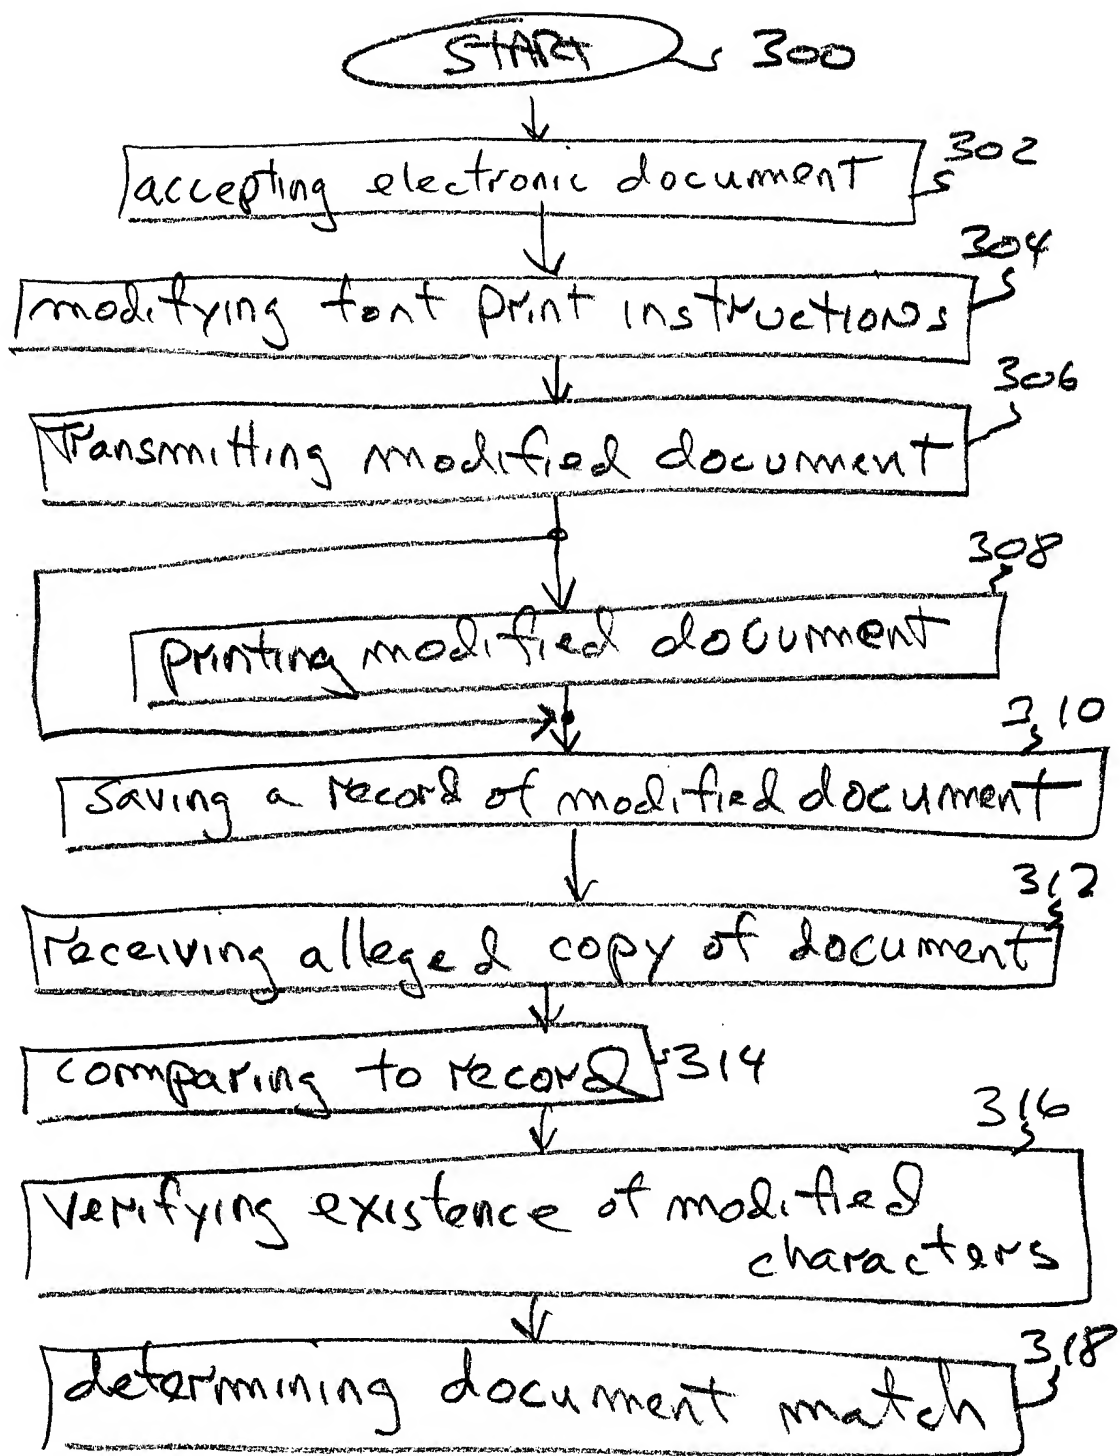 START 300
accepting electronic document 302
modifying font print instructions 304
Transmitting modified document 306
printing modified document 308
saving a record of modified document 310
receiving alleged copy of document 312
comparing to record 314
verifying existence of modified 316
characters
determining document match 318